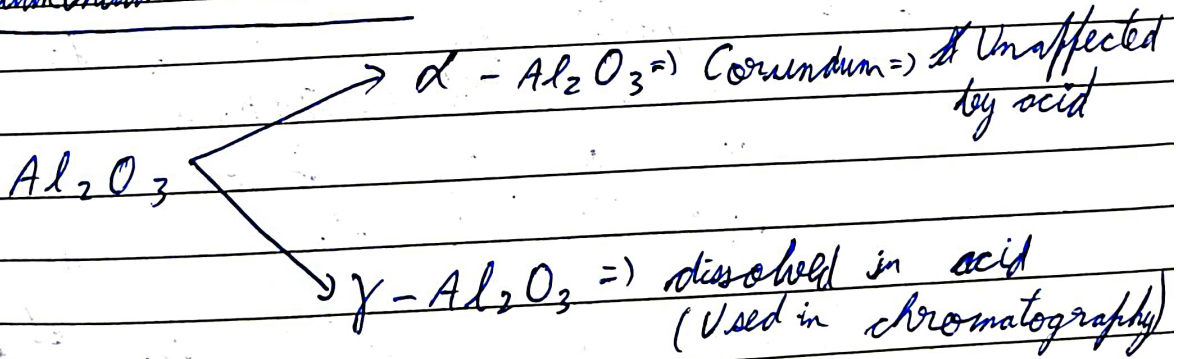 α - Al₂O₃ => Corundum => Unaffected
by acid
Al₂O₃
γ - Al₂O₃ => dissolved in acid
(Used in chromatography)